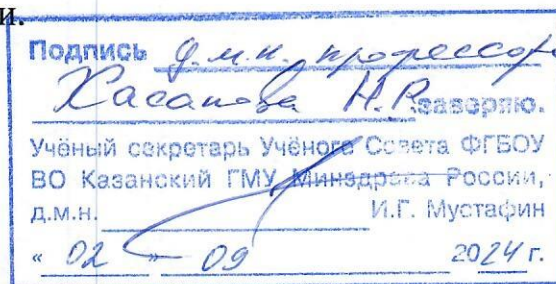 и.
Подпись д.м.н. профессора
Хасанова Н.Р. заверяю.
Учёный секретарь Учёного Совета ФГБОУ
ВО Казанский ГМУ Минздрава России,
д.м.н. И.Г. Мустафин
« 02 » 09 2024 г.